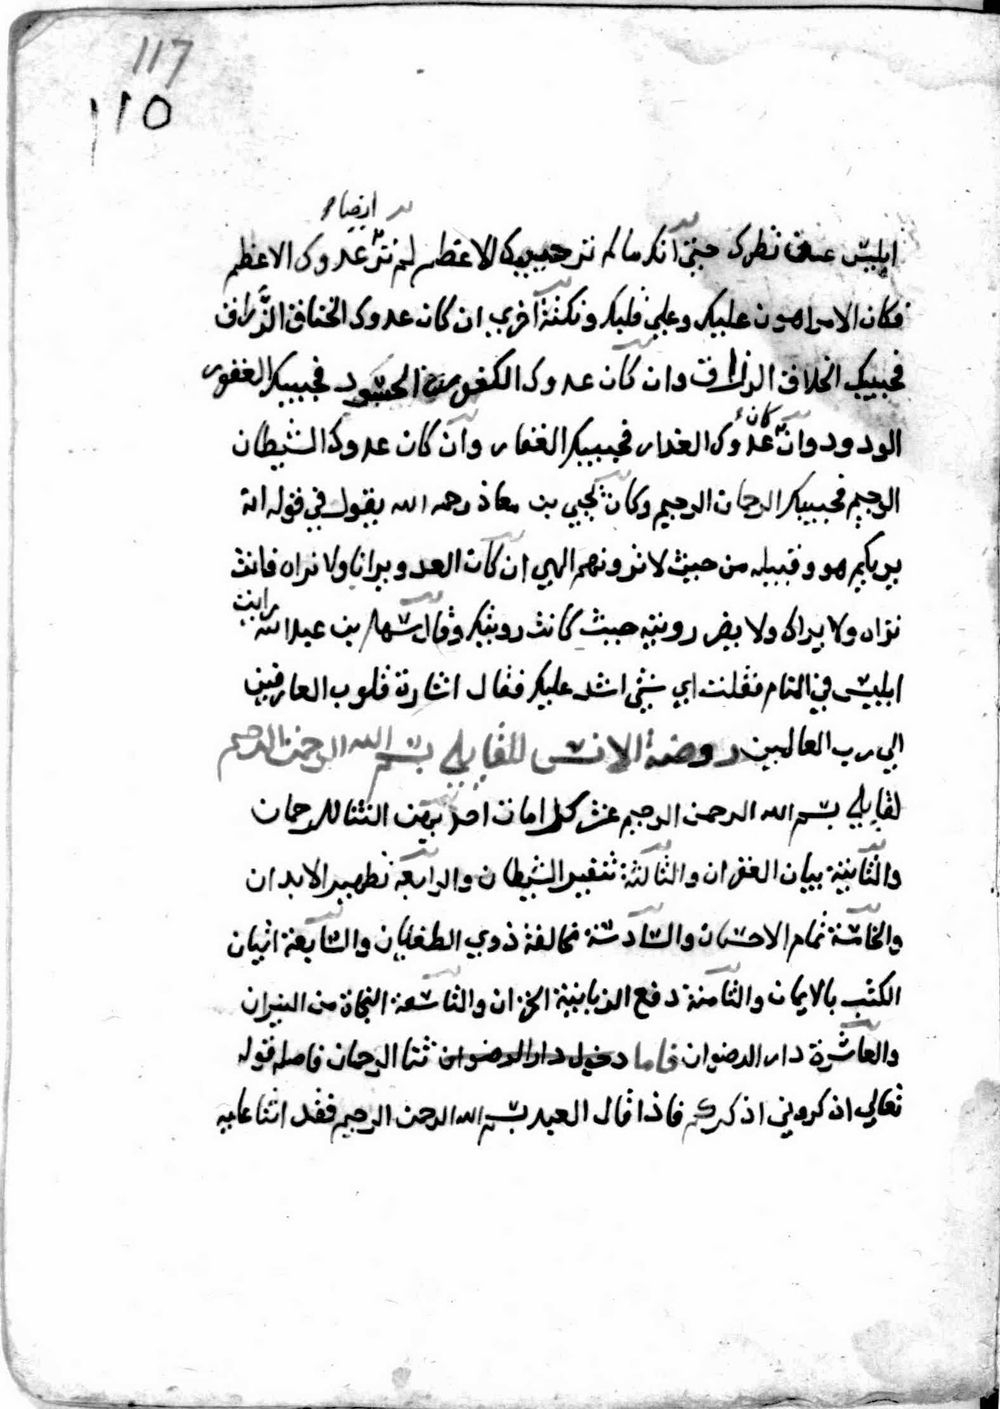 117
١١٥
ايضا
ابليس عن نظرك حتي انك ما لم تر حبيبك الاعظم لم تر عدوك الاعظم
فكان الامر اهون عليك وعلي قلبك ونكتة اخري ان كان عدوك الخناق الزراق
فحبيبك الخلاق الرزاق وان كان عدوك الكفور الحسود فحبيبك الغفور
كان
الودود وان عدوك الغدار فحبيبك الغفار وان كان عدوك الشيطان
الرجيم فحبيبك الرحمان الرحيم وكان يحيي بن معاذ رحمه الله يقول في قوله انه
يريكم هو وقبيله من حيث لا ترونهم الهي ان كان العدو يرانا ولا نراه فانت
تراه ولا يراك ولا يضر رويته حيث كانت رويتك وقال سهل بن عبد الله رايت
ابليس في المنام فقلت اي شيي اشد عليك فقال اشارة قلوب العارفين
الي رب العالمين روضة الانس للقايلي بسم الله الرحمن الرحيم
لقايلي بسم الله الرحمن الرحيم عشر كرامات احديهن الثنا للرحمان
والثانية بيان الغفران والثالثة تنفير الشيطان والرابعة تطهير الابدان
والخامسة تمام الاحسان والسادسة مخالفة ذوي الطغيان والسابعة اتيان
الكتب بالايمان والثامنة دفع الزبانية الخزان والتاسعة النجاة من النيران
والعاشرة دار الرضوان فاما دخول دار الرضوان ثنا الرحمان فاصله قوله
تعالي اذكروني اذكركم فاذا قال العبد بسم الله الرحمن الرحيم فقد اثنا عليه